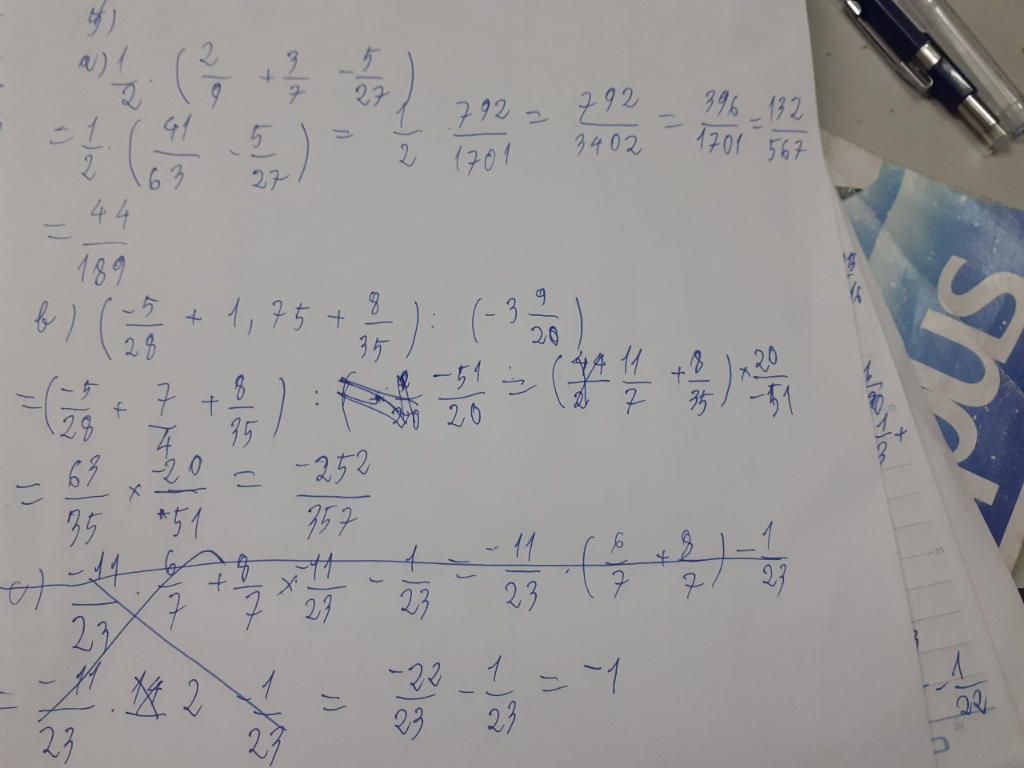 5)
a) 1/2 . (2/9 + 3/7 - 5/27)
= 1/2 . (41/63 - 5/27) = 1/2 . 792/1701 = 792/3402 = 396/1701 = 132/567
= 44/189
b) (-5/28 + 1,75 + 8/35) : (-3 9/20)
= (-5/28 + 7/4 + 8/35) : -51/20 = (11/7 + 8/35) × 20/-51
= 63/35 × -20/51 = -252/357
c) -11/23 . 6/7 + 8/7 × -11/23 - 1/23 = -11/23 . (6/7 + 8/7) - 1/23
= -11/23 . 2 - 1/23 = -22/23 - 1/23 = -1
- 1/22
BUS